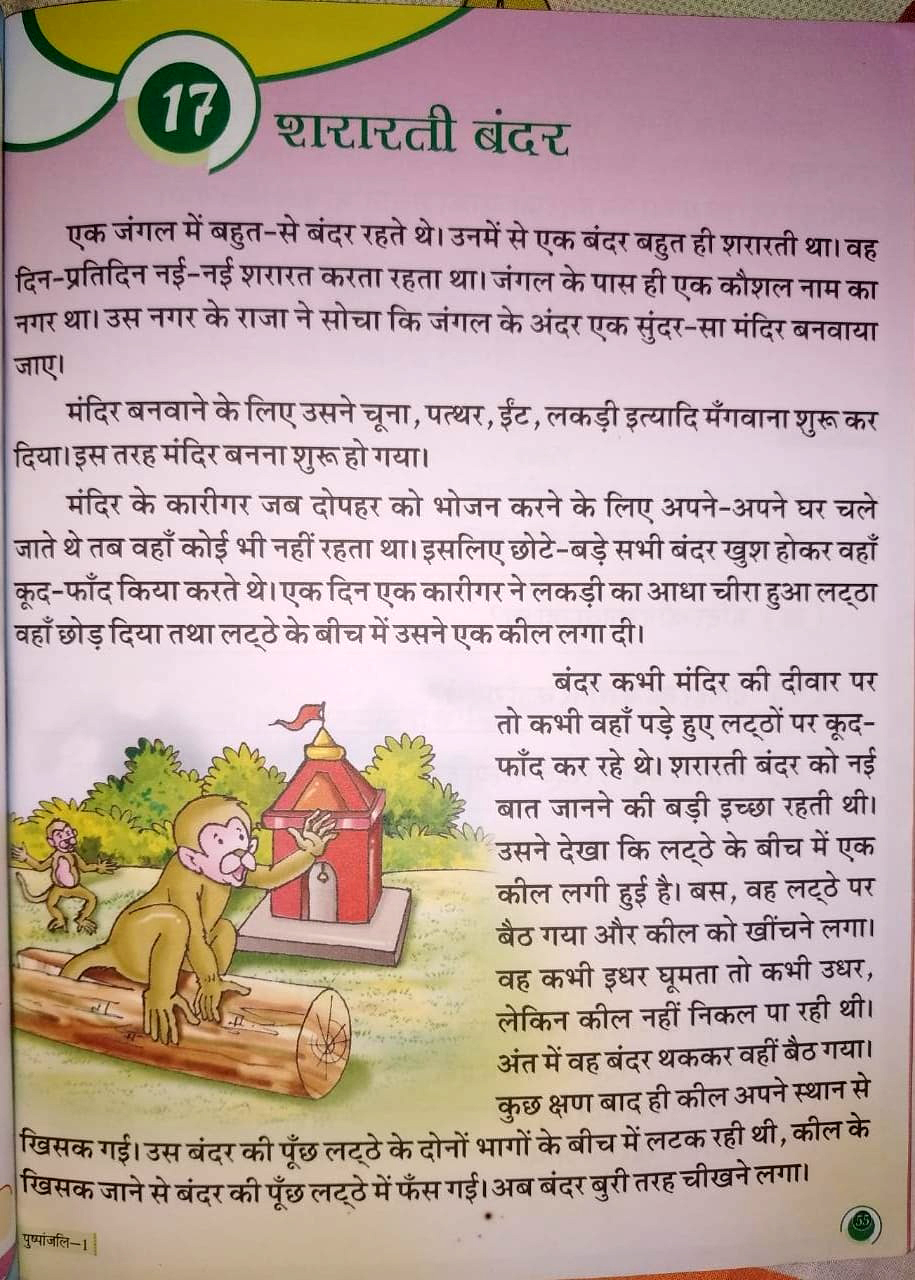 17
शरारती बंदर
एक जंगल में बहुत-से बंदर रहते थे। उनमें से एक बंदर बहुत ही शरारती था। वह
दिन-प्रतिदिन नई-नई शरारत करता रहता था। जंगल के पास ही एक कौशल नाम का
नगर था। उस नगर के राजा ने सोचा कि जंगल के अंदर एक सुंदर-सा मंदिर बनवाया
जाए।
मंदिर बनवाने के लिए उसने चूना, पत्थर, ईंट, लकड़ी इत्यादि मँगवाना शुरू कर
दिया। इस तरह मंदिर बनना शुरू हो गया।
मंदिर के कारीगर जब दोपहर को भोजन करने के लिए अपने-अपने घर चले
जाते थे तब वहाँ कोई भी नहीं रहता था। इसलिए छोटे-बड़े सभी बंदर खुश होकर वहाँ
कूद-फाँद किया करते थे। एक दिन एक कारीगर ने लकड़ी का आधा चीरा हुआ लट्‌ठा
वहाँ छोड़ दिया तथा लट्‌ठे के बीच में उसने एक कील लगा दी।
बंदर कभी मंदिर की दीवार पर
तो कभी वहाँ पड़े हुए लट्‌ठों पर कूद-
फाँद कर रहे थे। शरारती बंदर को नई
बात जानने की बड़ी इच्छा रहती थी।
उसने देखा कि लट्‌ठे के बीच में एक
कील लगी हुई है। बस, वह लट्‌ठे पर
बैठ गया और कील को खींचने लगा।
वह कभी इधर घूमता तो कभी उधर,
लेकिन कील नहीं निकल पा रही थी।
अंत में वह बंदर थककर वहीं बैठ गया।
कुछ क्षण बाद ही कील अपने स्थान से
खिसक गई। उस बंदर की पूँछ लट्‌ठे के दोनों भागों के बीच में लटक रही थी, कील के
खिसक जाने से बंदर की पूँछ लट्‌ठे में फँस गई। अब बंदर बुरी तरह चीखने लगा।
पुष्पांजलि-1
55